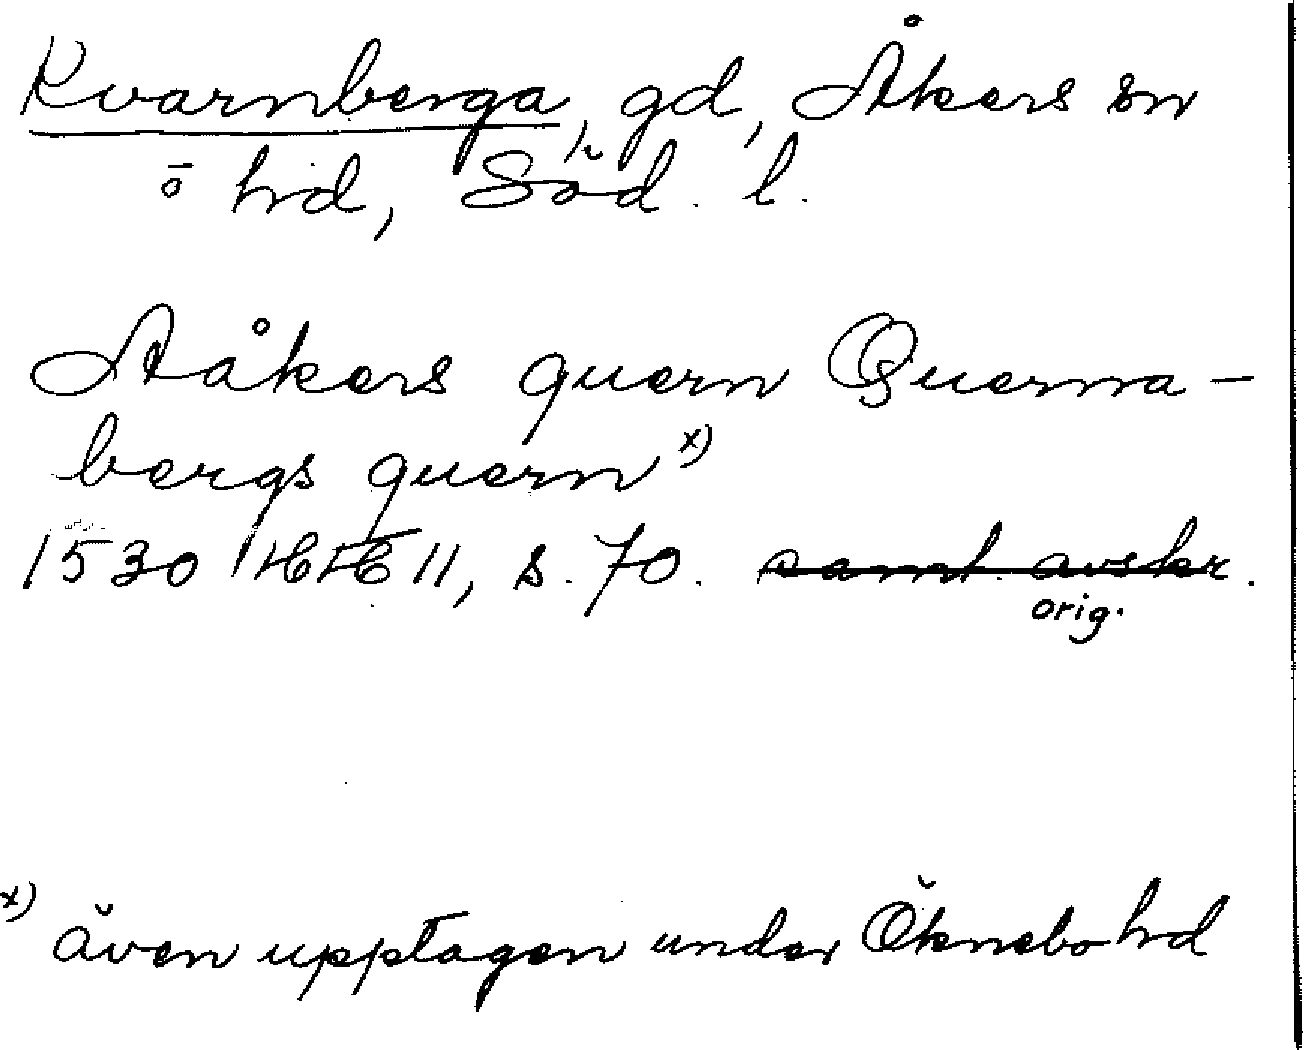 Kvarnberga, gd, Åkers sn
o hd, Söd. l.
Aåkers quern Querna-
bergs quern x)
1530 HH 11, s. 70. samt. avskr.
orig.
x) även upptagen under Öknebo hd